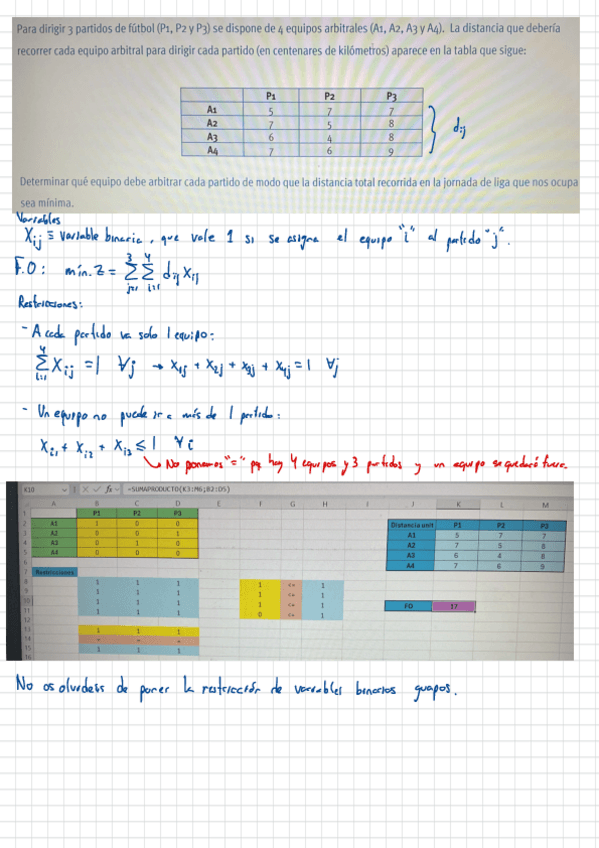 Para dirigir 3 partidos de fútbol (P1, P2 y P3) se dispone de 4 equipos arbitrales (A1, A2, A3 y A4). La distancia que debería
recorrer cada equipo arbitral para dirigir cada partido (en centenares de kilómetros) aparece en la tabla que sigue:
P1 P2 P3
A1 5 7 7
A2 7 5 8
A3 6 4 8
A4 7 6 9
dij
Determinar qué equipo debe arbitrar cada partido de modo que la distancia total recorrida en la jornada de liga que nos ocupa
sea mínima.
Variables
Xij ≡ variable binaria, que vale 1 si se asigna el equipo "i" al partido "j".
F.O: mín. Z = 3 Σ j=1 4 Σ i=1 dij Xij
Restricciones:
- A cada partido va solo 1 equipo:
4 Σ i=1 Xij = 1 ∀j → X1j + X2j + X3j + X4j = 1 ∀j
- Un equipo no puede ir a más de 1 partido:
Xi1 + Xi2 + Xi3 ≤ 1 ∀i
↳ No ponemos "=" pq hay 4 equipos y 3 partidos y un equipo se quedará fuera.
K10 fx =SUMAPRODUCTO(K3:M6;B2:D5)
A B C D E F G H I J K L M
1 P1 P2 P3 Distancia unit P1 P2 P3
2 A1 1 0 0 A1 5 7 7
3 A2 0 0 1 A2 7 5 8
4 A3 0 1 0 A3 6 4 8
5 A4 0 0 0 A4 7 6 9
6
7 Restricciones
8 1 1 1 1 <= 1
9 1 1 1 1 <= 1
10 1 1 1 1 <= 1 FO 17
11 1 1 1 0 <= 1
13 1 1 1
14 = = =
15 1 1 1
No os olvidéis de poner la restricción de variables binarias guapos.